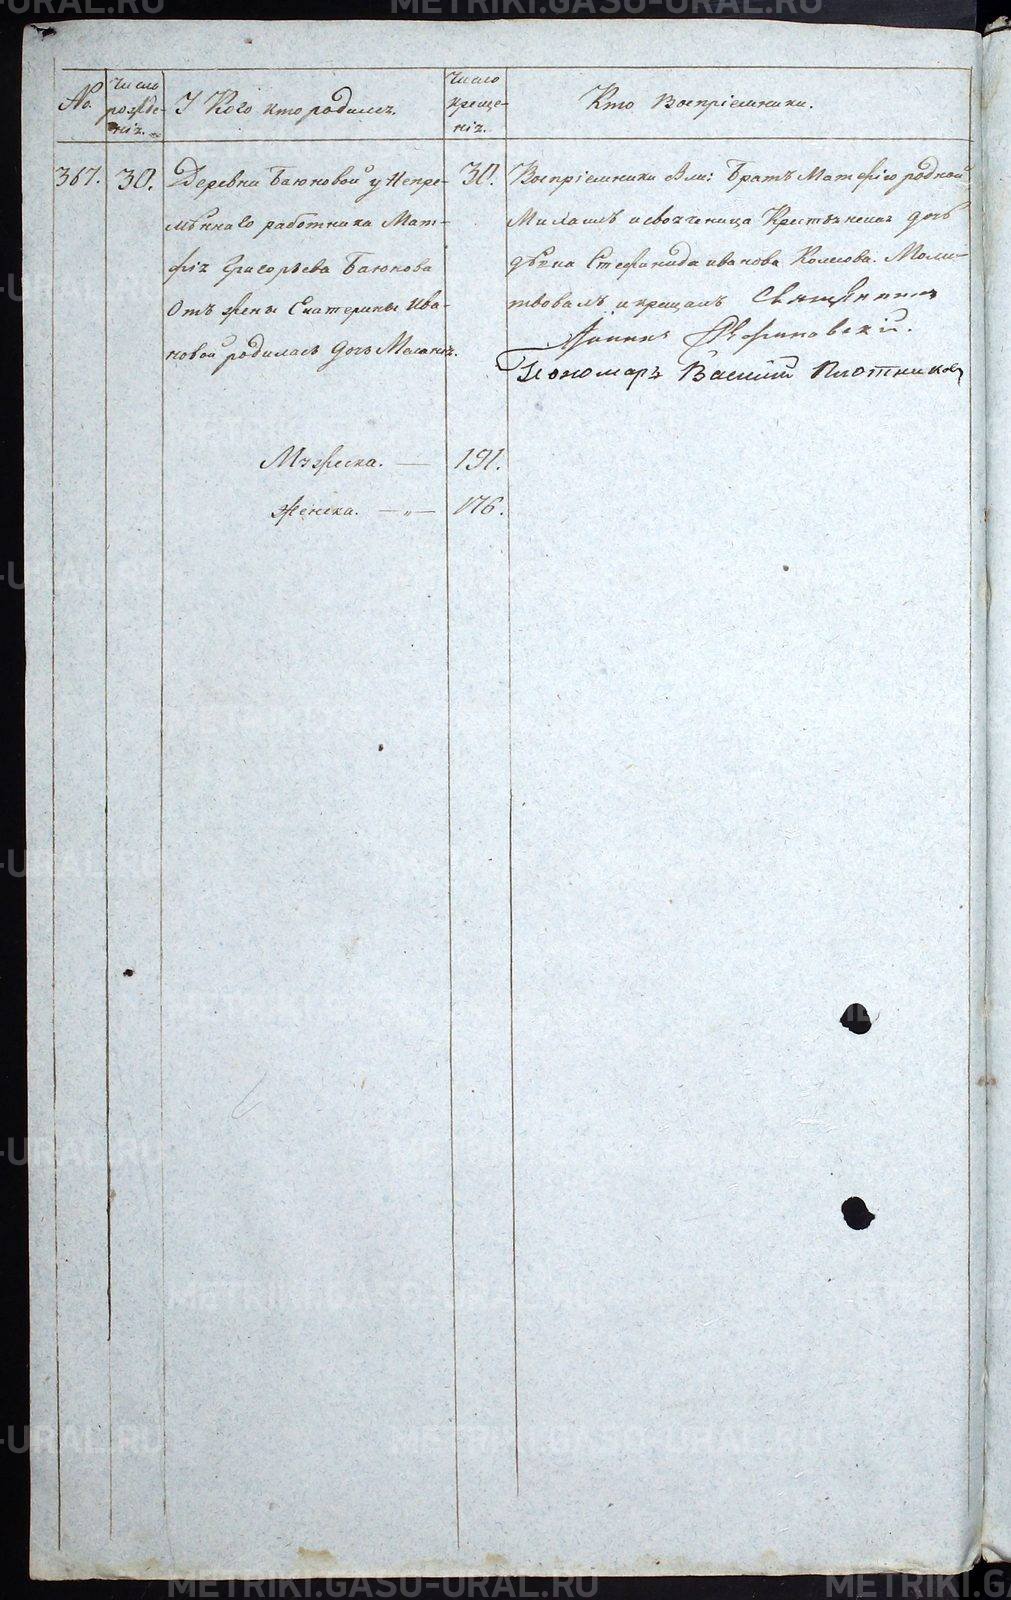 №.
Число рожде-нiя.
У Кого кто родился.
Число креще-нiя.
Кто Воспрiемники.
367.
30.
Деревни Баюновой у Непре-
мѣннаго работника Мат-
фiя Григорьева Баюнова
отъ жены Екатерины Ива-
новой родилась дочь Меланiя.
30.
Воспрiемники были: Братъ Матфiю родной
Михаилъ и Крестьянская дочь
дѣвка Стефанида иванова Молит-
вовалъ и крещалъ Священникъ
Iоаннъ
Пономарь Василiй Плотниковъ
Мужеска. — 191.
Женска. — „ — 176.
METRIKI.GASO-URAL.RU